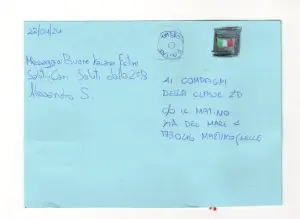 28/04/24
Messaggio: Buone vacanze Felici
Saluti Cari Saluti dalla 2B
Alessandro S.
AI COMPAGNI
DELLA CLASSE 2D
C/O IL MATINO
VIA DEL MARE 4
73046 MATINO (LECCE